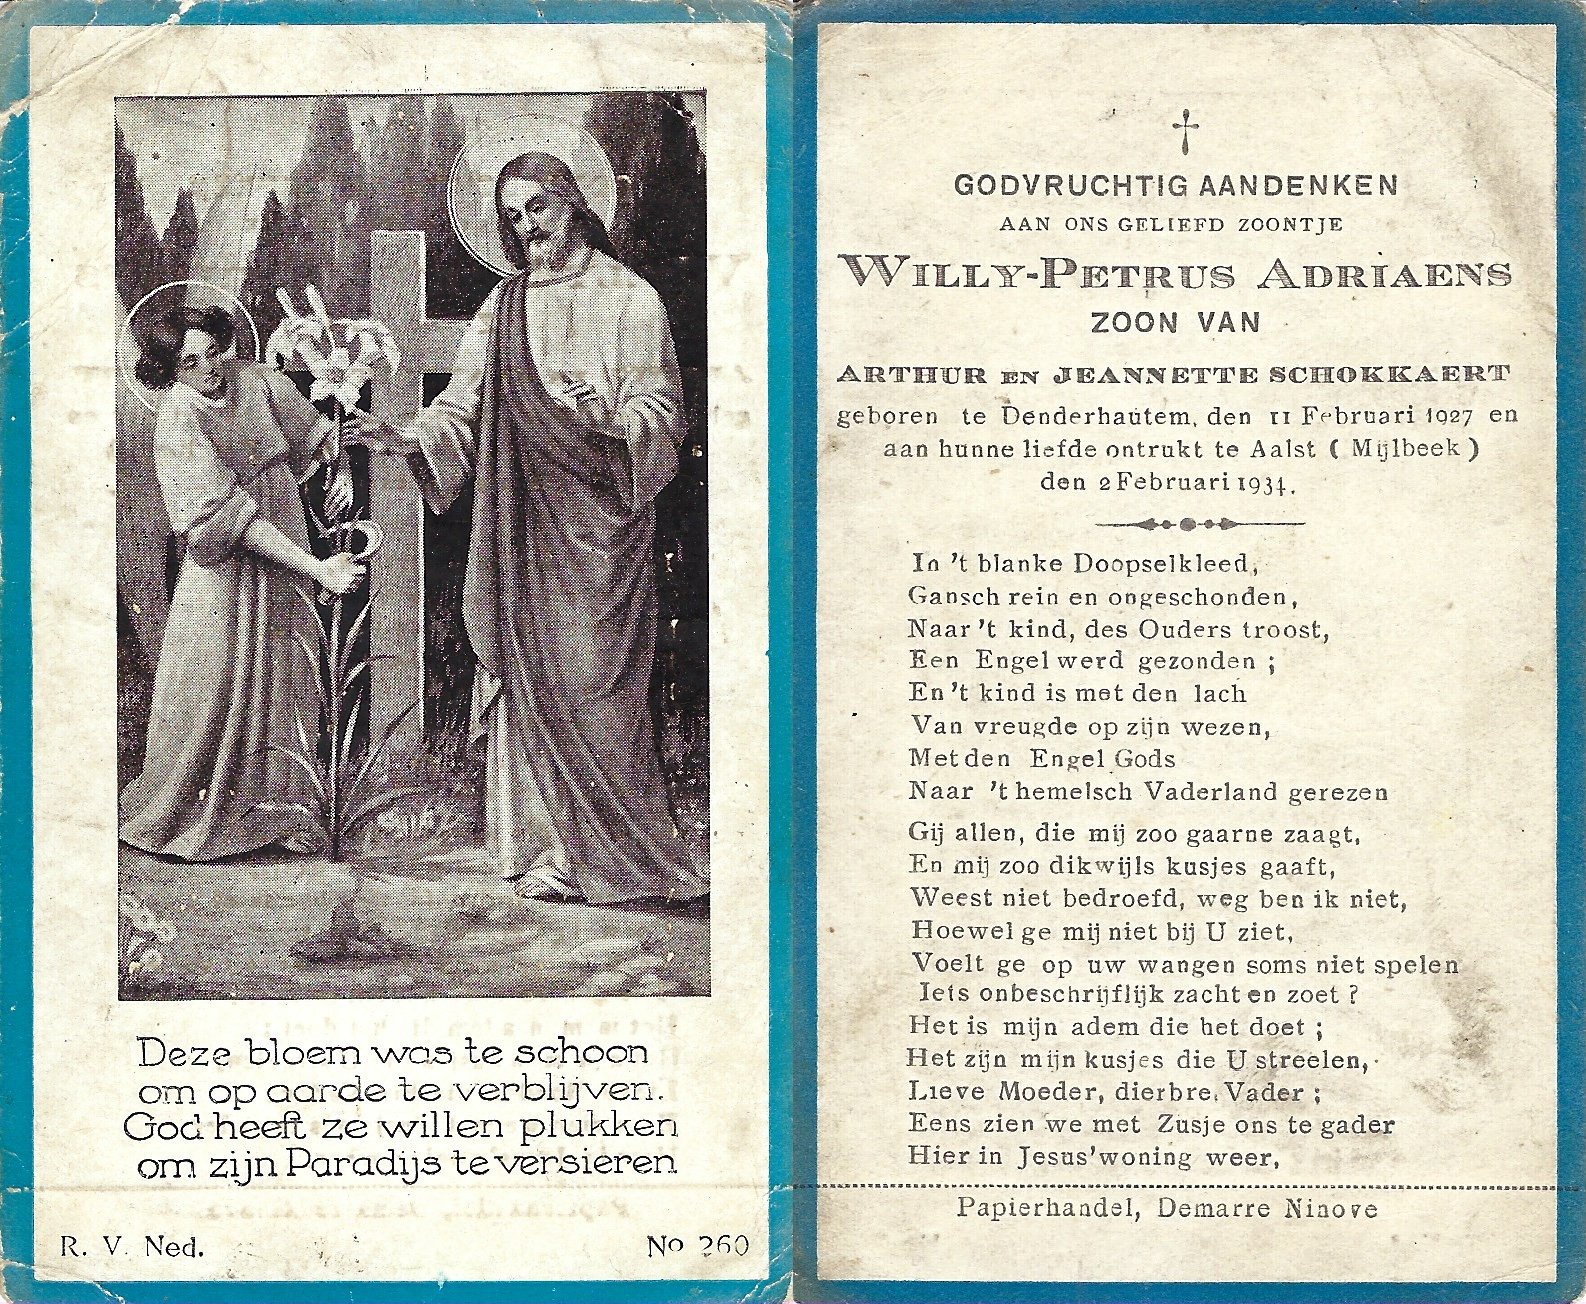 Deze bloem was te schoon
om op aarde te verblijven.
God heeft ze willen plukken
om zijn Paradijs te versieren
R. V. Ned.
No 260
GODVRUCHTIG AANDENKEN
AAN ONS GELIEFD ZOONTJE
WILLY-PETRUS ADRIAENS
ZOON VAN
ARTHUR EN JEANNETTE SCHOKKAERT
geboren te Denderhautem, den 11 Februari 1927 en
aan hunne liefde ontrukt te Aalst ( Mijlbeek )
den 2 Februari 1934.
In 't blanke Doopselkleed,
Gansch rein en ongeschonden,
Naar 't kind, des Ouders troost,
Een Engel werd gezonden ;
En 't kind is met den lach
Van vreugde op zijn wezen,
Met den Engel Gods
Naar 't hemelsch Vaderland gerezen
Gij allen, die mij zoo gaarne zaagt,
En mij zoo dikwijls kusjes gaaft,
Weest niet bedroefd, weg ben ik niet,
Hoewel ge mij niet bij U ziet,
Voelt ge op uw wangen soms niet spelen
Iets onbeschrijflijk zacht en zoet ?
Het is mijn adem die het doet ;
Het zijn mijn kusjes die U streelen,
Lieve Moeder, dierbre Vader ;
Eens zien we met Zusje ons te gader
Hier in Jesus' woning weer,
Papierhandel, Demarre Ninove